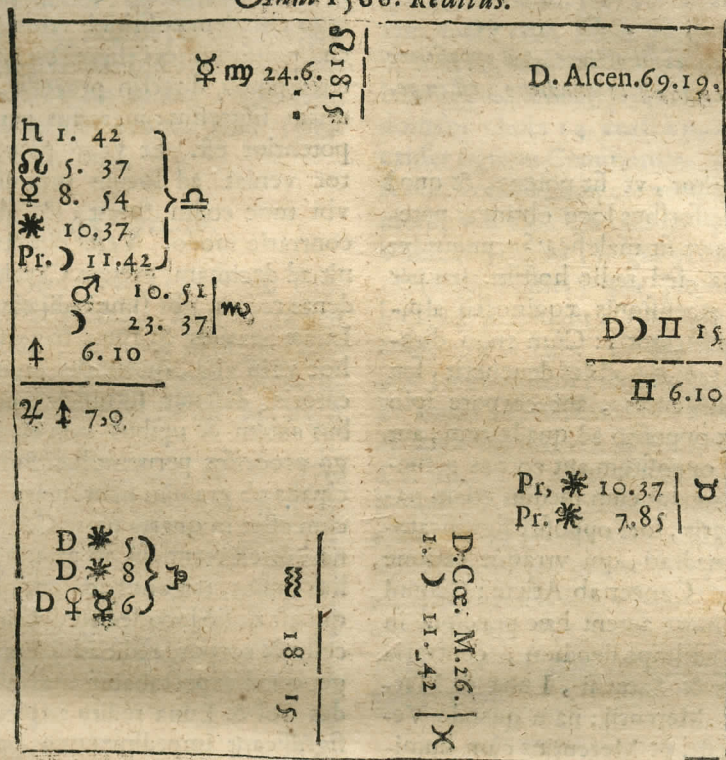 Anni 1566. Reditus.
☿ ♍ 24.6.
♌ 18 15
D. Aſcen.69.19.
♄ 1. 42
☊ 5. 37
☿ 8. 54
☀ 10.37
Pr. ☽ 11.42
♎
♂ 10. 51
☽ 23. 37
♏
♐ 6.10
♃ ♐ 7,0
D ☽ ♊ 15
♊ 6.10
Pr, ☀ 10.37
Pr. ☀ 7,85
♉
D ☀ 5
D ☀ 8
D ♀ ☿ 6
♑
♒ 18 15
D:Cœ: M.26.
1. ☽ 11.42
♓